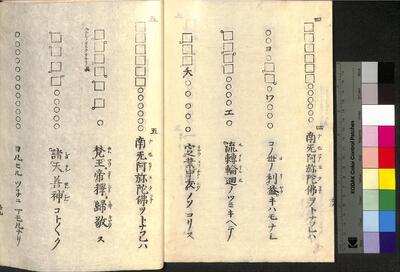 四
南无阿弥陀佛ヲトナフレハ
コノ世ノ利益キハモナシ
流轉輪廻ノツミキヘテ
定業中夭ノソコリヌ
五
南无阿弥陀佛ヲトナフレハ
梵王帝釋歸敬ス
諸天善神コト〳〵ク
ヨルヒルツネニマモルナリ
KODAK Color Control Patches